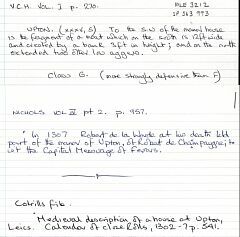 V.C.H. Vol. I p. 270.
MLE 3212
SP 363 993
UPTON. (xxxv, 5) To the S.W. of the manor house
is the fragment of a moat which on the south is 12ft wide
and credited by a bank 3ft in height; and on the north
extended two other low aggers.
Class G. (more strongly defensive than F)
NICHOLS VOL IV pt 2. p. 957.
"In 1307 Robert de la Whyte at his death held
part of the manor of Upton, of Robert de Champaigne; to
wit the Capital Messuage of Ferars.
Cottrills file
"Medieval description of a house at Upton,
Leics. Calendar of close Rolls, 1302-7 p. 541.